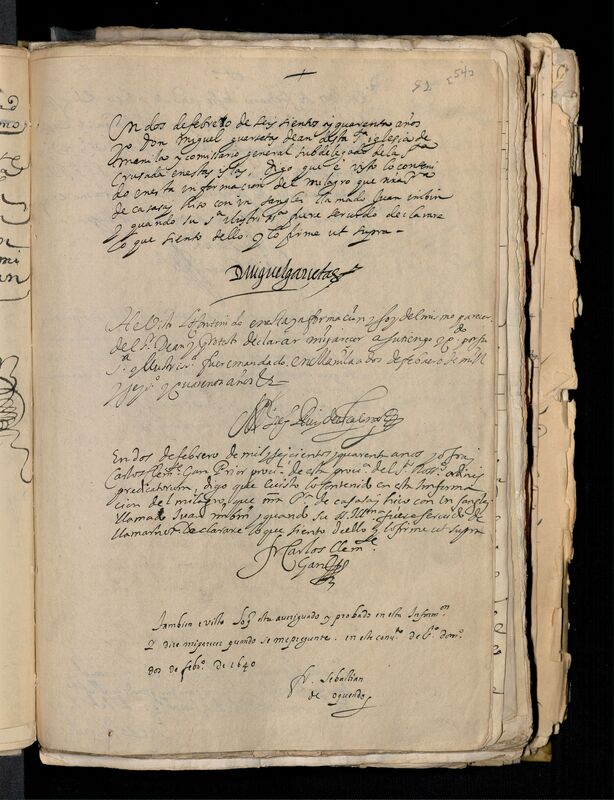 52 [54]
En dos de febrero de seys sientos y quarenta años
yo don Miguel garsetas dean desta sta iglesia de
manila y comisario general subdelegado de la sta
Cruzada en estas yslas. digo que e visto lo conteni
do en esta informacion del milagro que nra sra
de casasay hiso con un sangley llamado Juan imbin
y quando su sa Illustrisa fuere servido declarare
lo que siento dello. y lo firme ut supra
D Miguel garsetas
He Visto lo contenido en esta ynformacion y soy del mismo pareser
del Sr Dean y protesto declarar mi pareser a su tiempo y qdo por su
sa Yllustrisa fuere mandado. en Manila a dos de febrero de mill
y seysos y quarenta años
En dos de febrero de mil y seiscientos y quarenta anos yo fray
Carlos Clemte Gan Prior provl de esta provincia del So Rosso ordinis
predicatorum, digo que e visto lo contenido en esta Informa
cion del milagro, que nra sa de casasay hiço con un sangley
llamado Juan imbin y quando su sa Illma fuese servido de
llamarnos Declarare lo que siento de ello y lo firme ut supra
fr Carlos Clemte
Gan
Tambien e visto lo q esta averiguado y probado en esta Informon
q dire mi pareser quando se me pregunte. en este convto de So domo
dos de febro de 1640
fr. Sebastian
de oquendo